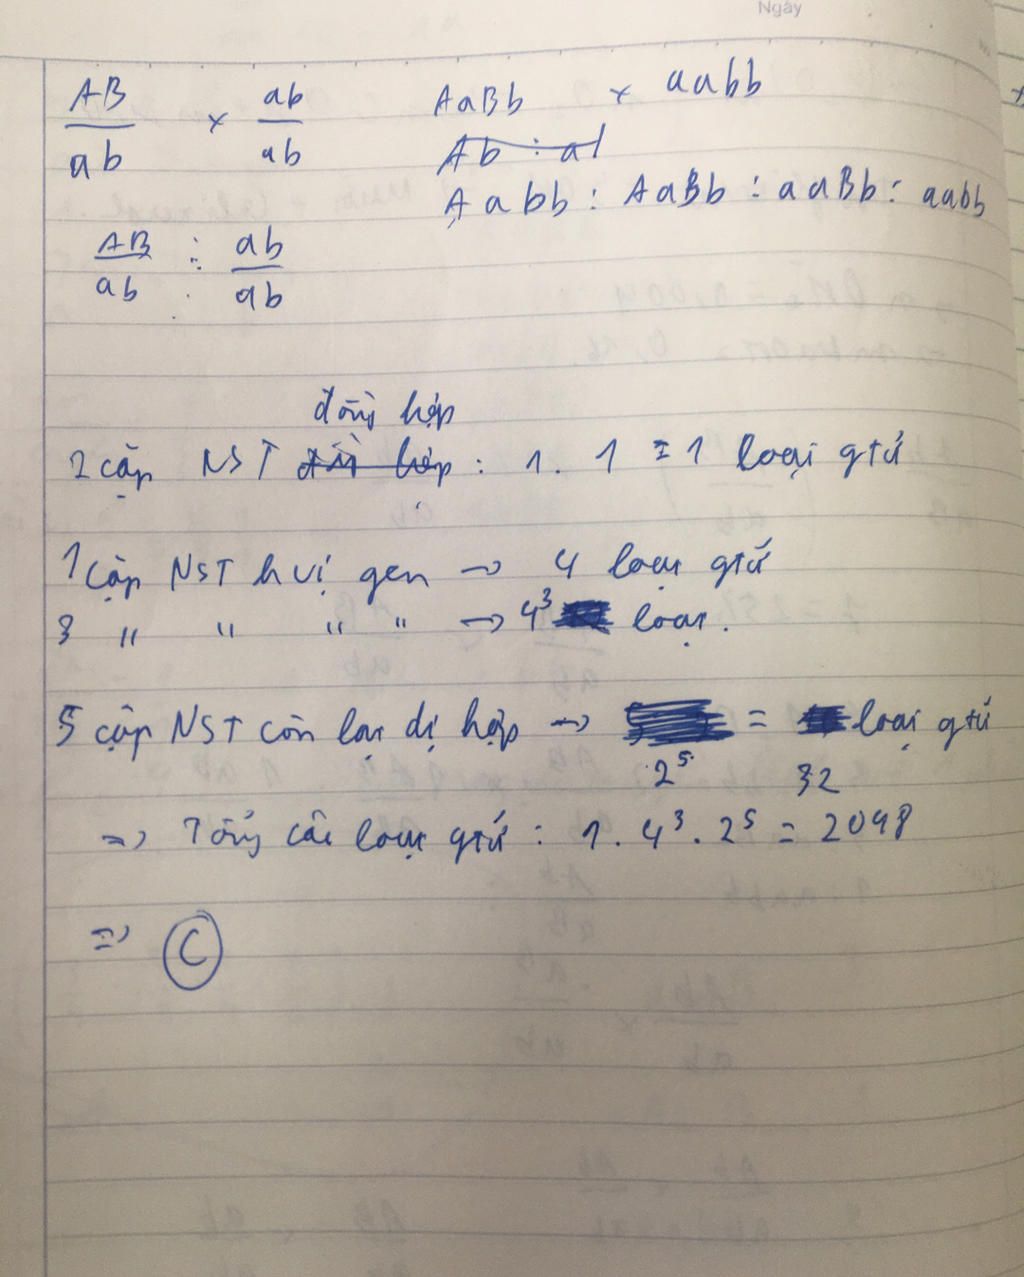 Ngày
AB/ab × ab/ab
AB/ab : ab/ab
AaBb × aabb
Ab : a
Aabb : AaBb : aaBb : aabb
đồng hợp
2 cặp NST : 1. 1 = 1 loại gtử
1 cặp NST h vị gen → 4 loại gtử
3 〃 〃 〃 〃 → 4³ loại.
5 cặp NST còn lại dị hợp → = loại gtử
2⁵ 32
=> Tổng các loại gtử : 1. 4³. 2⁵ = 2048
=> C